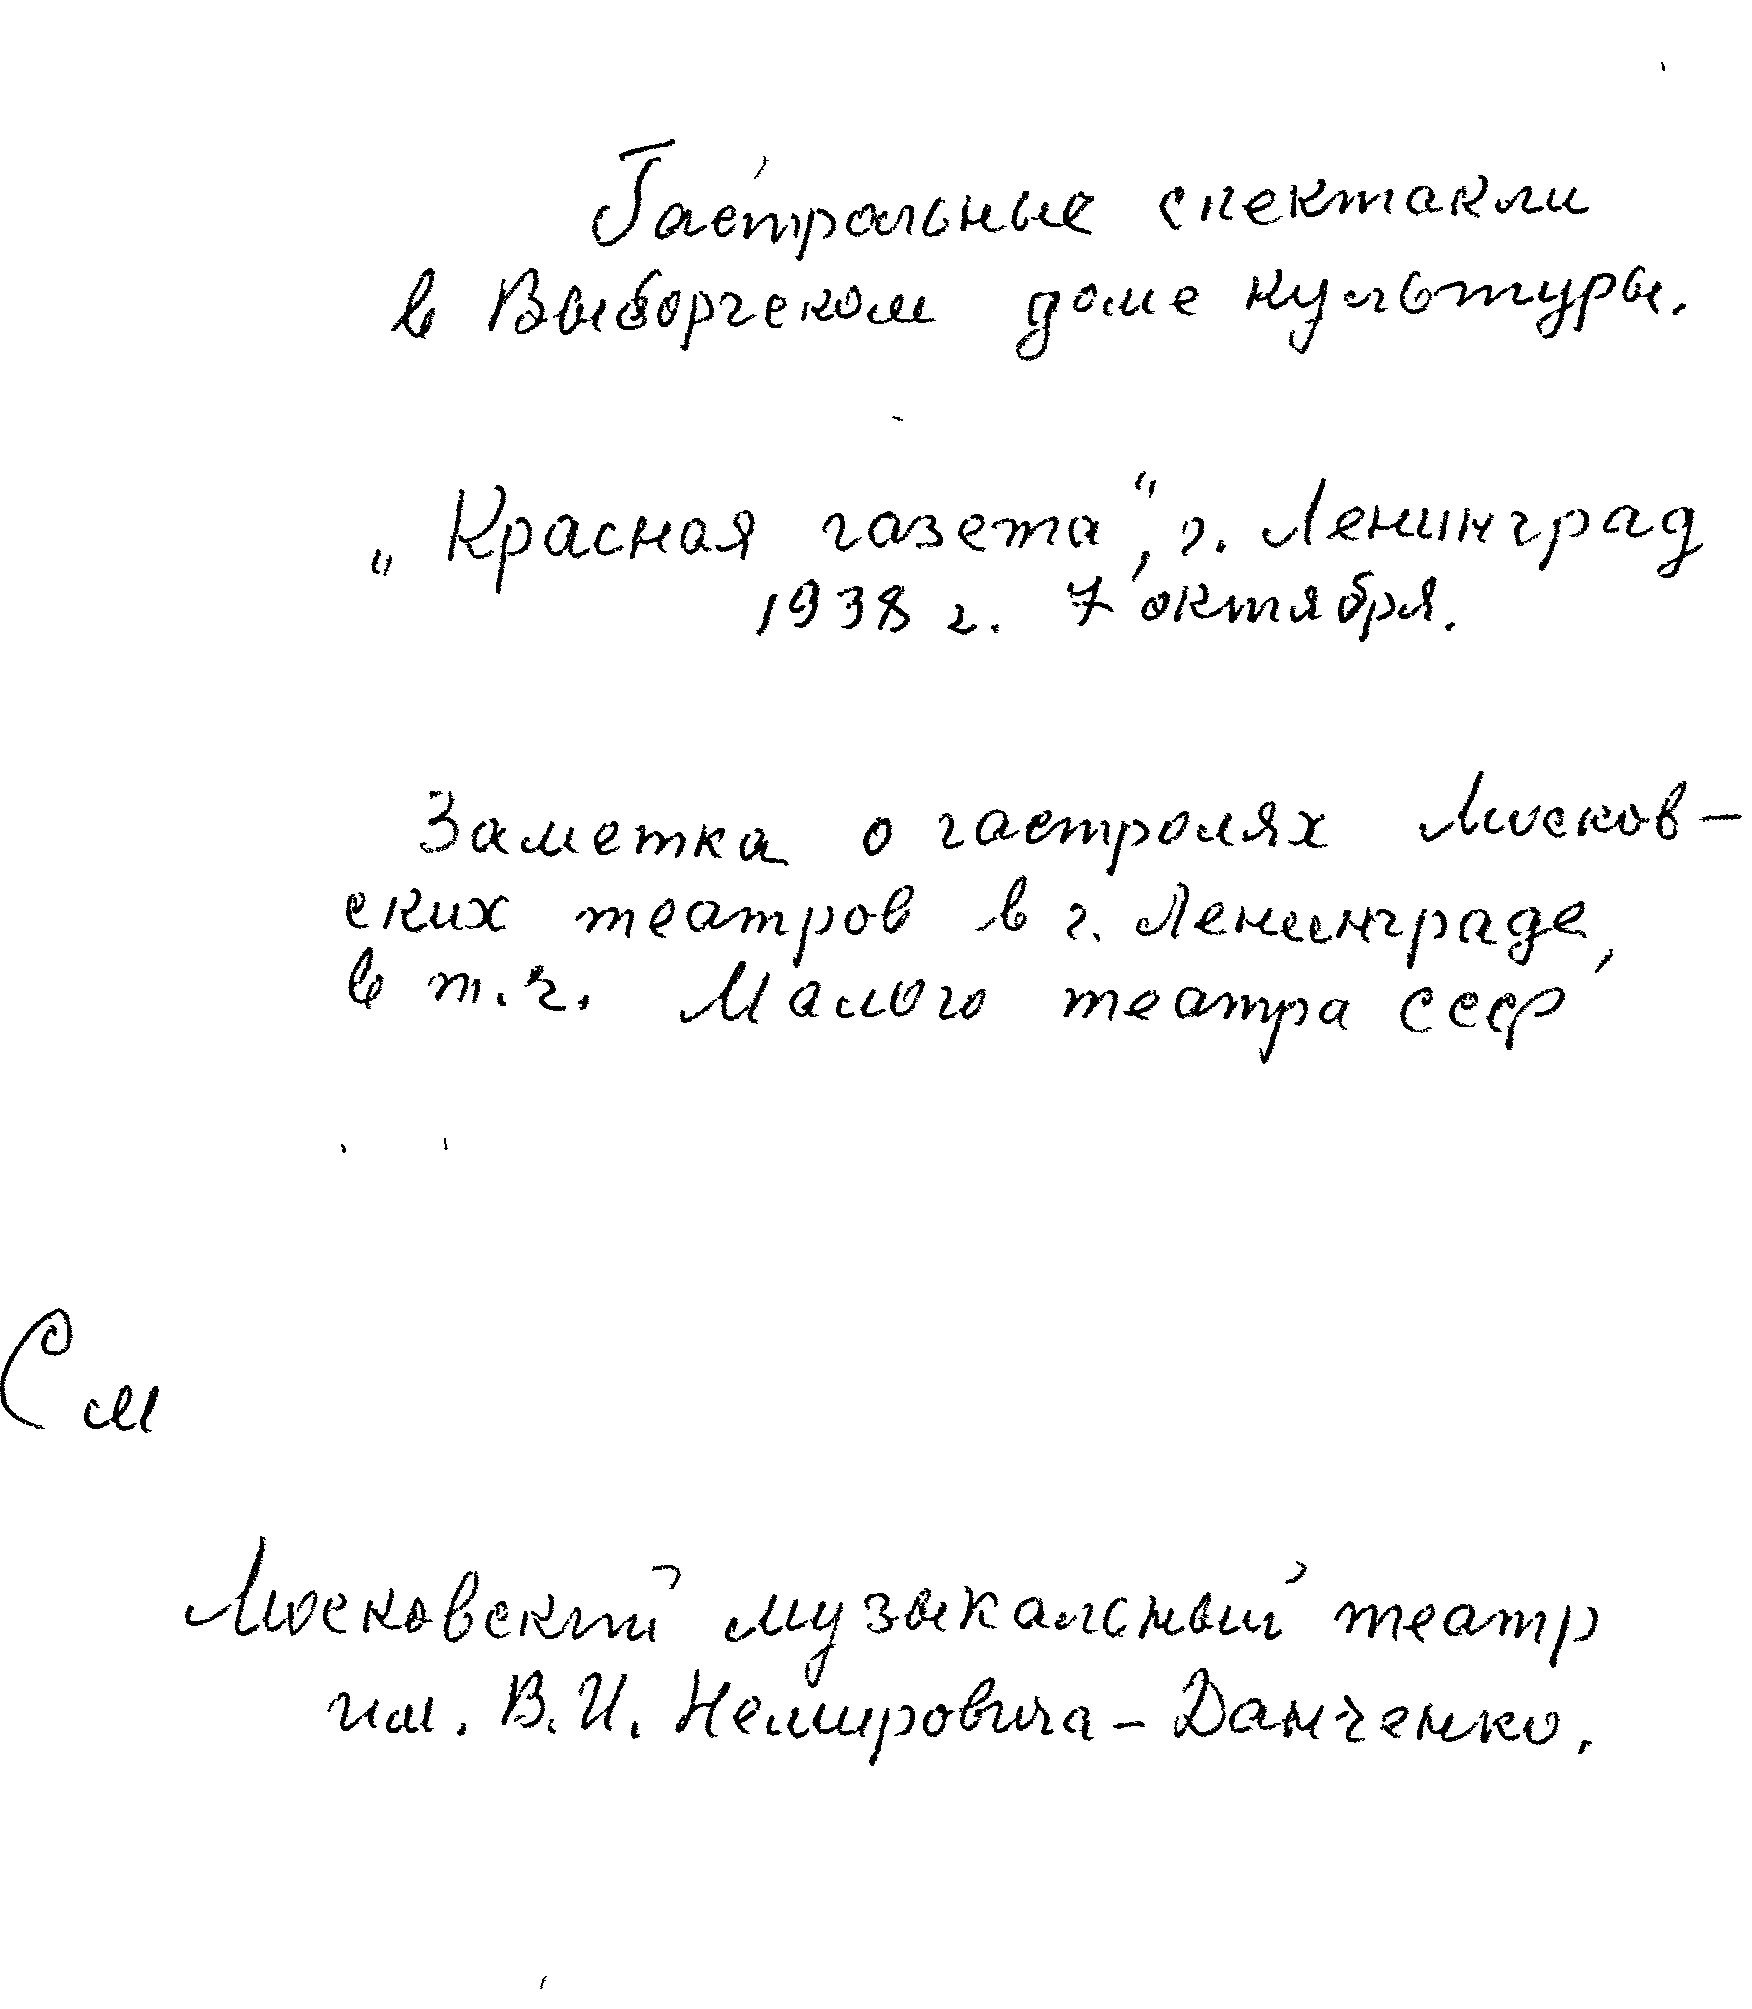 Гастрольные спектакли
в Выборгском доме культуры.
„Красная газета“, г. Ленинград
1938 г. 7 октября.
Заметка о гастролях Москов-
ских театров в г. Ленинграде,
в т.ч. Малого театра СССР
См
Московский музыкальный театр
им. В.И. Немировича-Данченко.